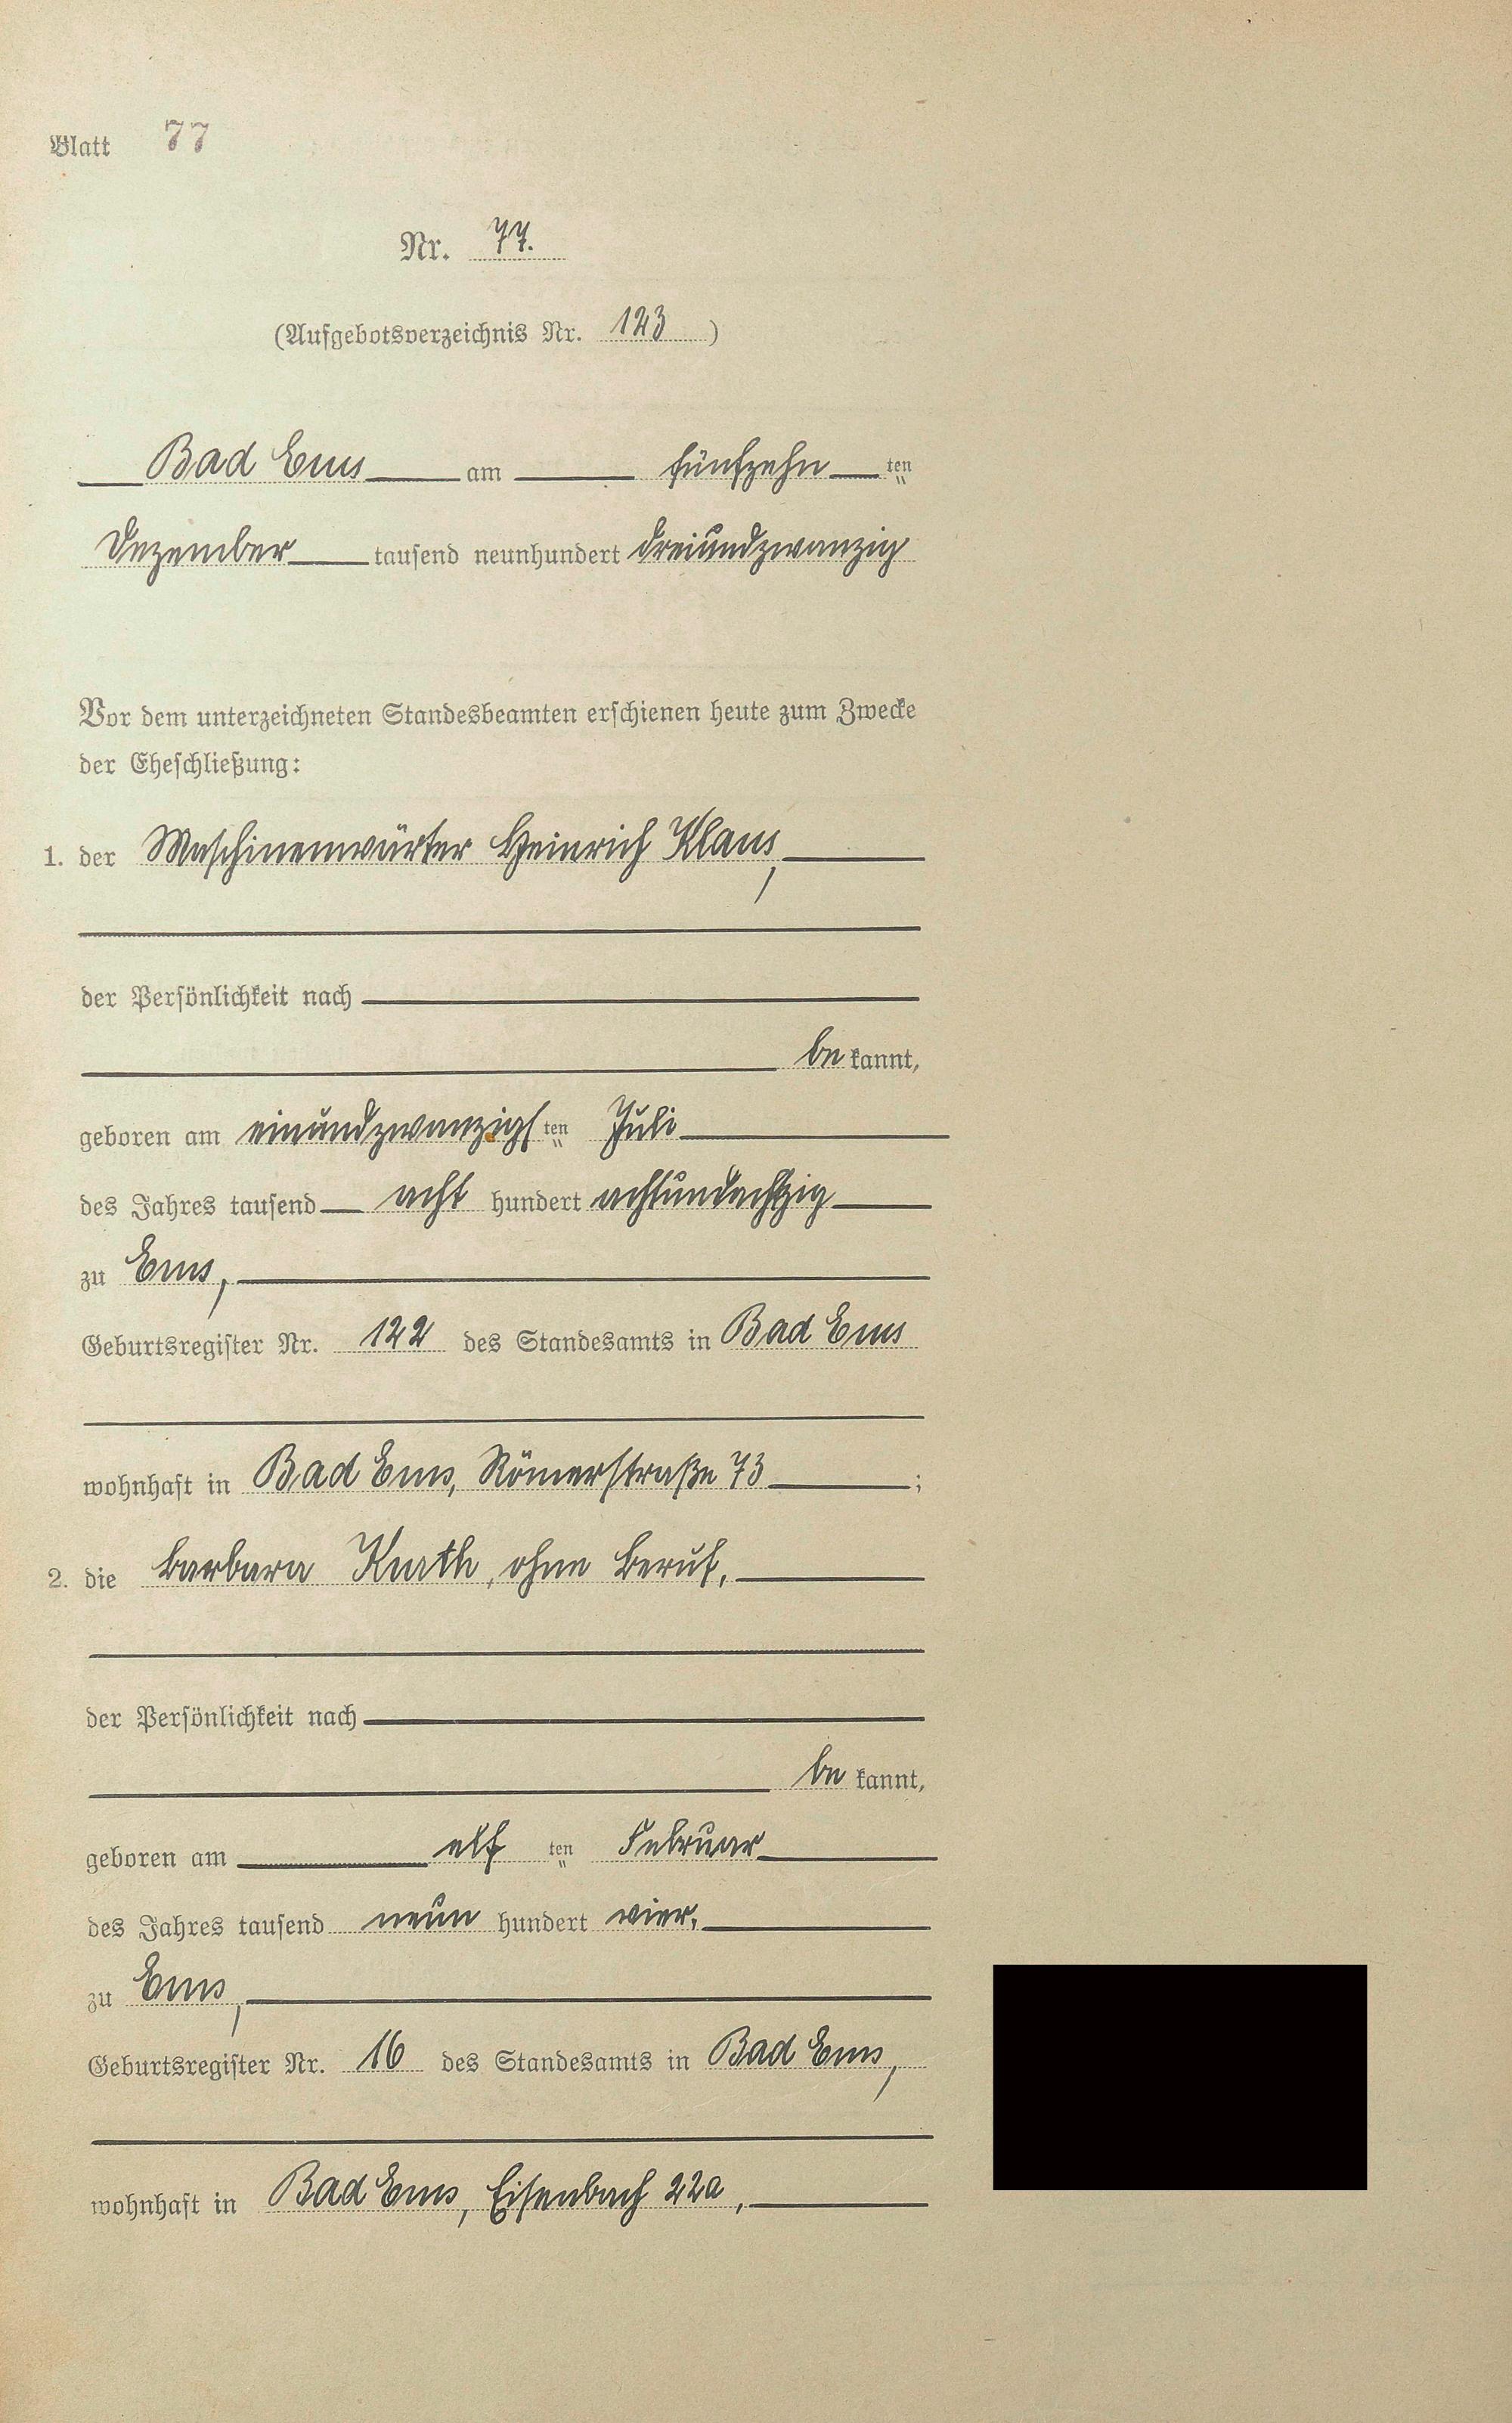 Blatt 77
Nr. 77.
(Aufgebotsverzeichnis Nr. 123)
Bad Ems am fünfzehn ten
Dezember tausend neunhundert dreiundzwanzig
Vor dem unterzeichneten Standesbeamten erschienen heute zum Zwecke
der Eheschließung:
1. der Maschinenwärter Heinrich Klaus,
der Persönlichkeit nach
be kannt,
geboren am einundzwanzigs ten Juli
des Jahres tausend acht hundert achtundachtzig
zu Ems,
Geburtsregister Nr. 122 des Standesamts in Bad Ems
wohnhaft in Bad Ems, Römerstraße 73 ;
2. die Barbara Kurth, ohne Beruf,
der Persönlichkeit nach
be kannt,
geboren am elf ten Februar
des Jahres tausend neun hundert vier,
zu Ems,
Geburtsregister Nr. 16 des Standesamts in Bad Ems,
wohnhaft in Bad Ems, Eisenbach 22a,